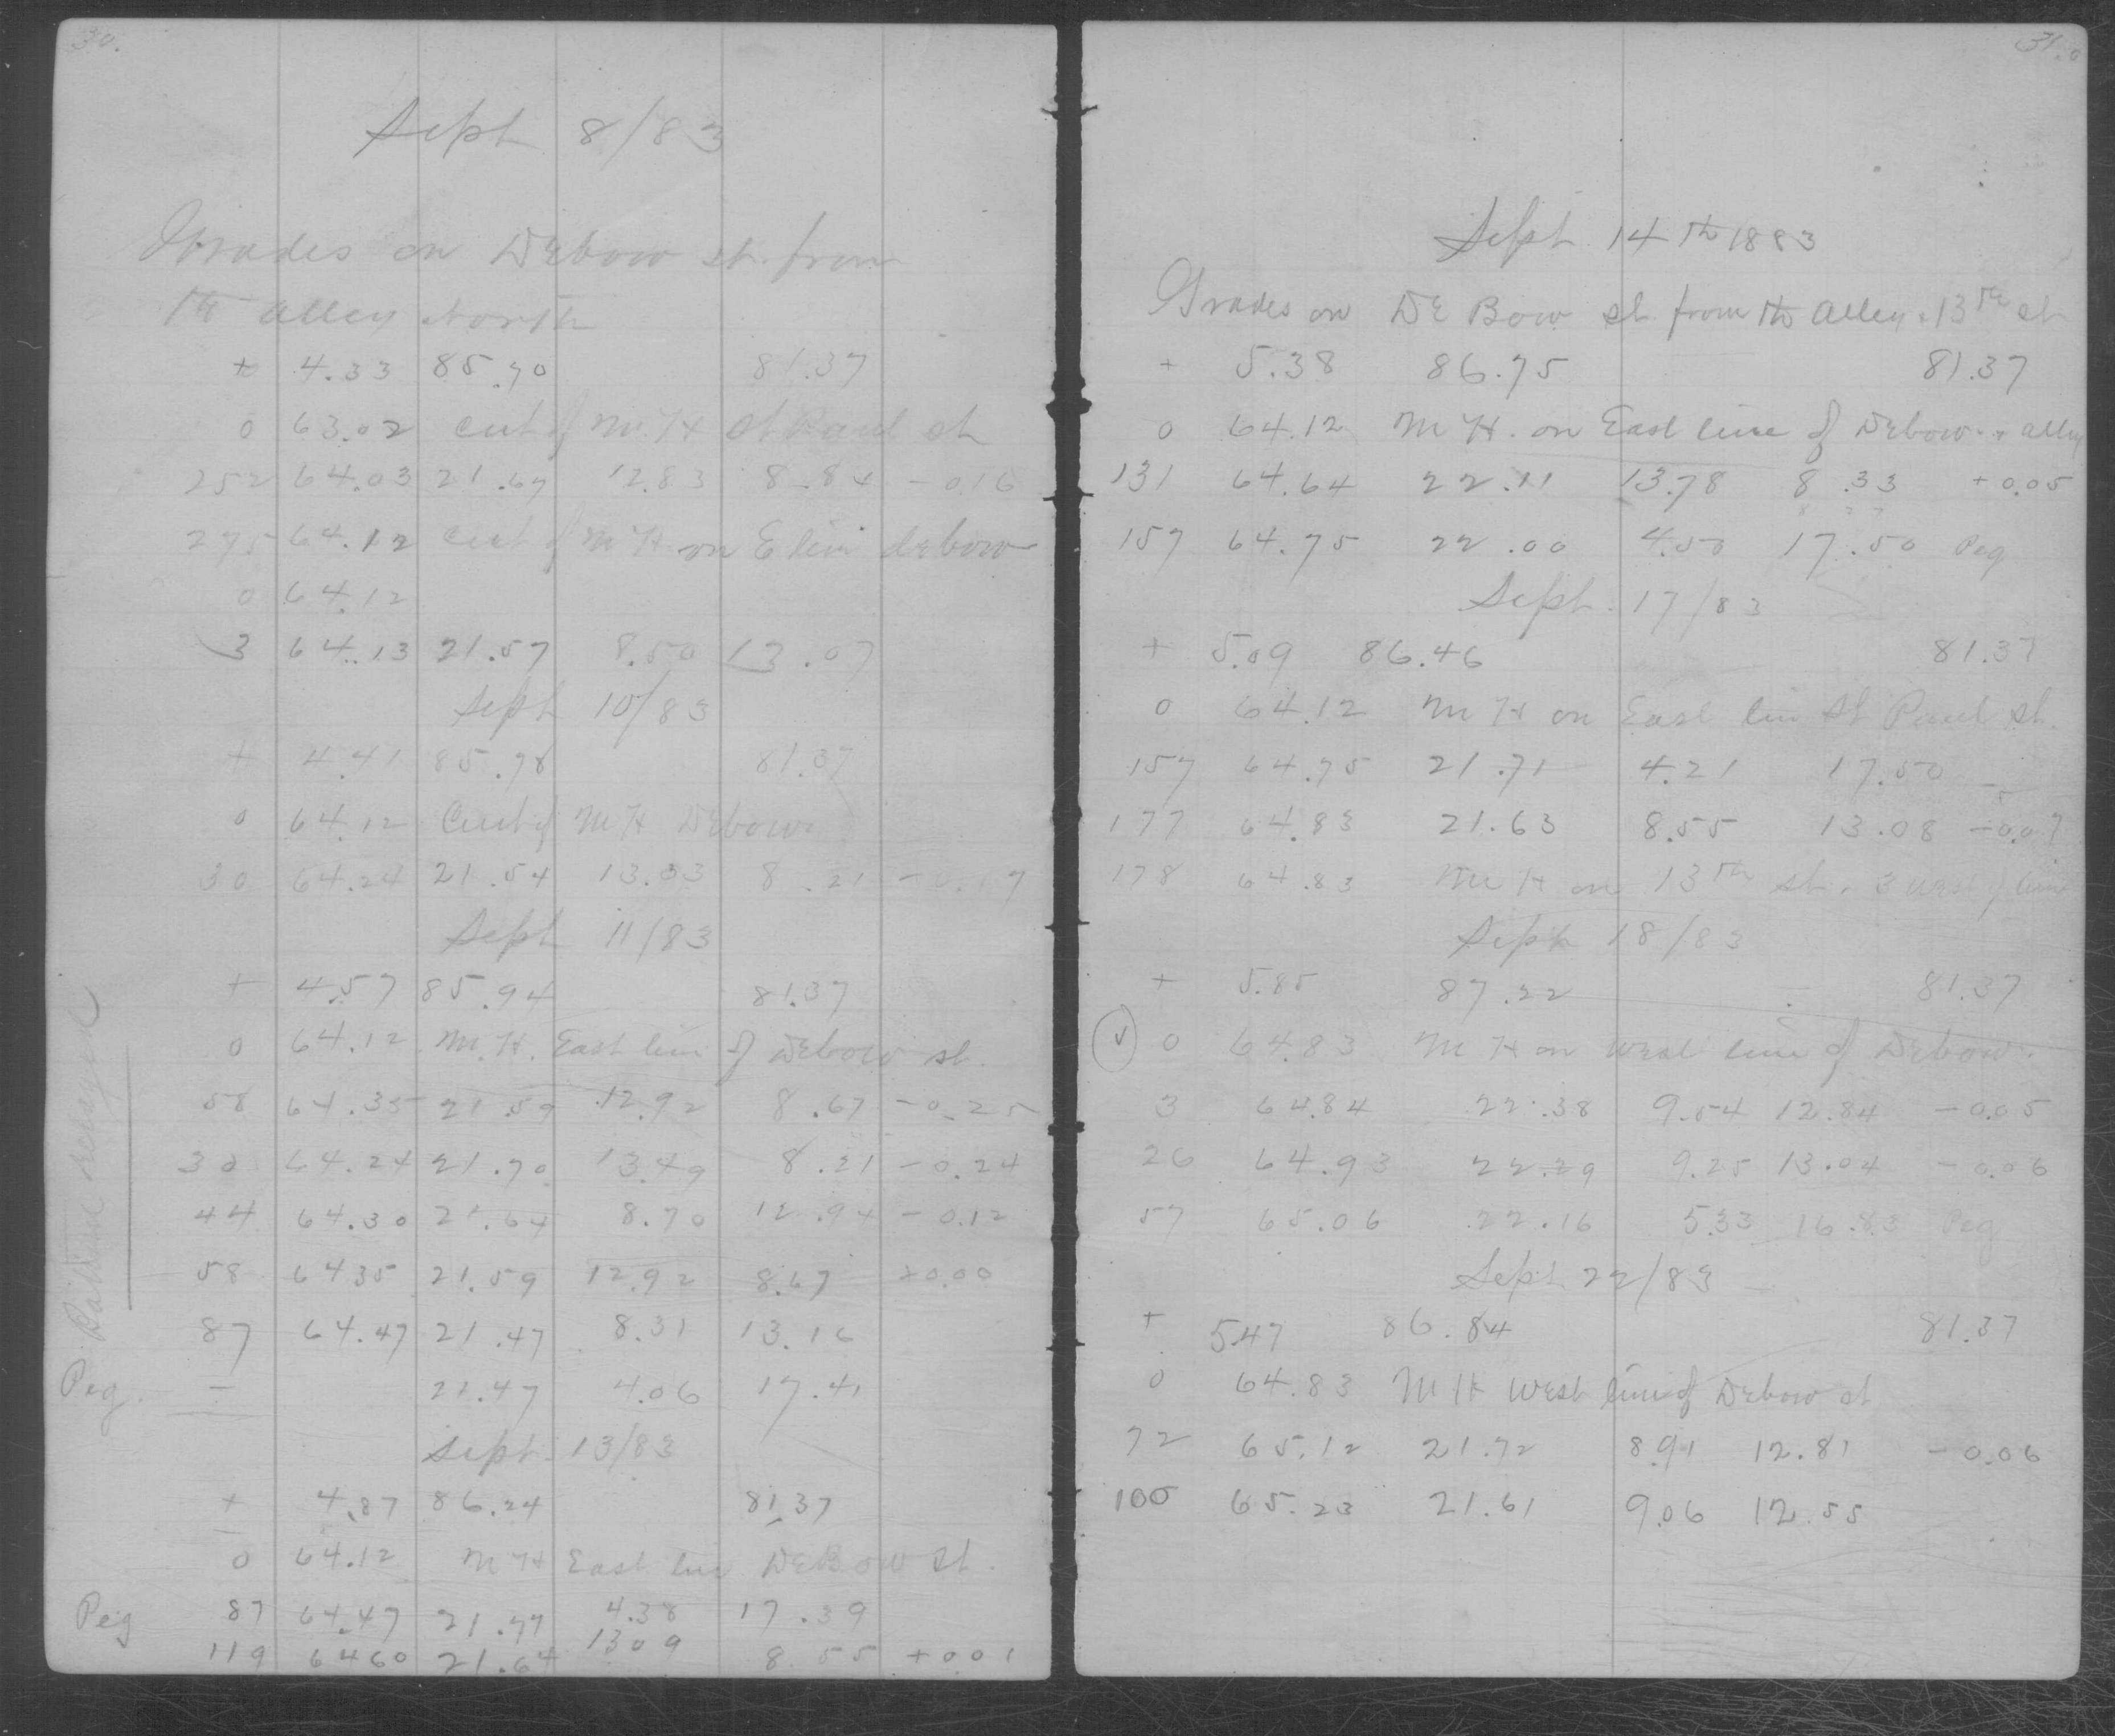 30.
Sept 8/83
Grades on Debow st. from
the alley North
+ 4.33 85.70 81.37
0 63.02 cent of M.H St Paul st
252 64.03 21.67 12.83 8.84 -0.16
275 64.12 cent of M H on E line debow
0 64.12
3 64.13 21.57 8.50 13.07
Sept 10/83
+ 4.41 85.78 81.37
0 64.12 Cent of M H Debow
30 64.24 21.54 13.33 8.21
Sept 11/83
+ 4.57 85.94 81.37
0 64.12 M.H. East line of Debow st.
58 64.35 21.59 12.92 8.67 -0.25
30 64.24 21.70 13.49 8.21 -0.24
44 64.30 21.64 8.70 12.94 -0.12
58 64 35 21.59 12.92 8.67 +0.00
87 64.47 21.47 8.31 13.16
Peg. - 21.47 4.06 17.41
Sept. 13/83
+ 4.87 86.24 81.37
0 64.12 M H East line DeBow st.
Peg 87 64.47 21.77 4.38 17.39
119 64 60 21.64 13 09 8.55 +0 01
31.
Sept 14th 1883
Grades on De Bow st. from the alley 13th st
+ 5.38 86.75 81.37
0 64.12 M H. on East line of Debow alley
131 64.64 22.11 13.78 8.33 +0.05
157 64.75 22.00 4.50 17.50 Peg
Sept. 17/83
+ 5.09 86.46 81.37
0 64.12 M H on East line St Paul st.
157 64.75 21.71 4.21 17.50
177 64.83 21.63 8.55 13.08 -0.07
178 64.83 M H on 13th st. 3 west of line
Sept 18/83
+ 5.85 87.22 81.37
0 64.83 M H on West line of Debow.
3 64.84 22.38 9.54 12.84 -0.05
26 64.93 22.29 9.25 13.04 -0.06
57 65.06 22.16 5.33 16.83 Peg
Sept 22/83
+ 5.47 86.84 81.37
0 64.83 M H West line of Debow st
72 65.12 21.72 8.91 12.81 -0.06
100 65.23 21.61 9.06 12.55